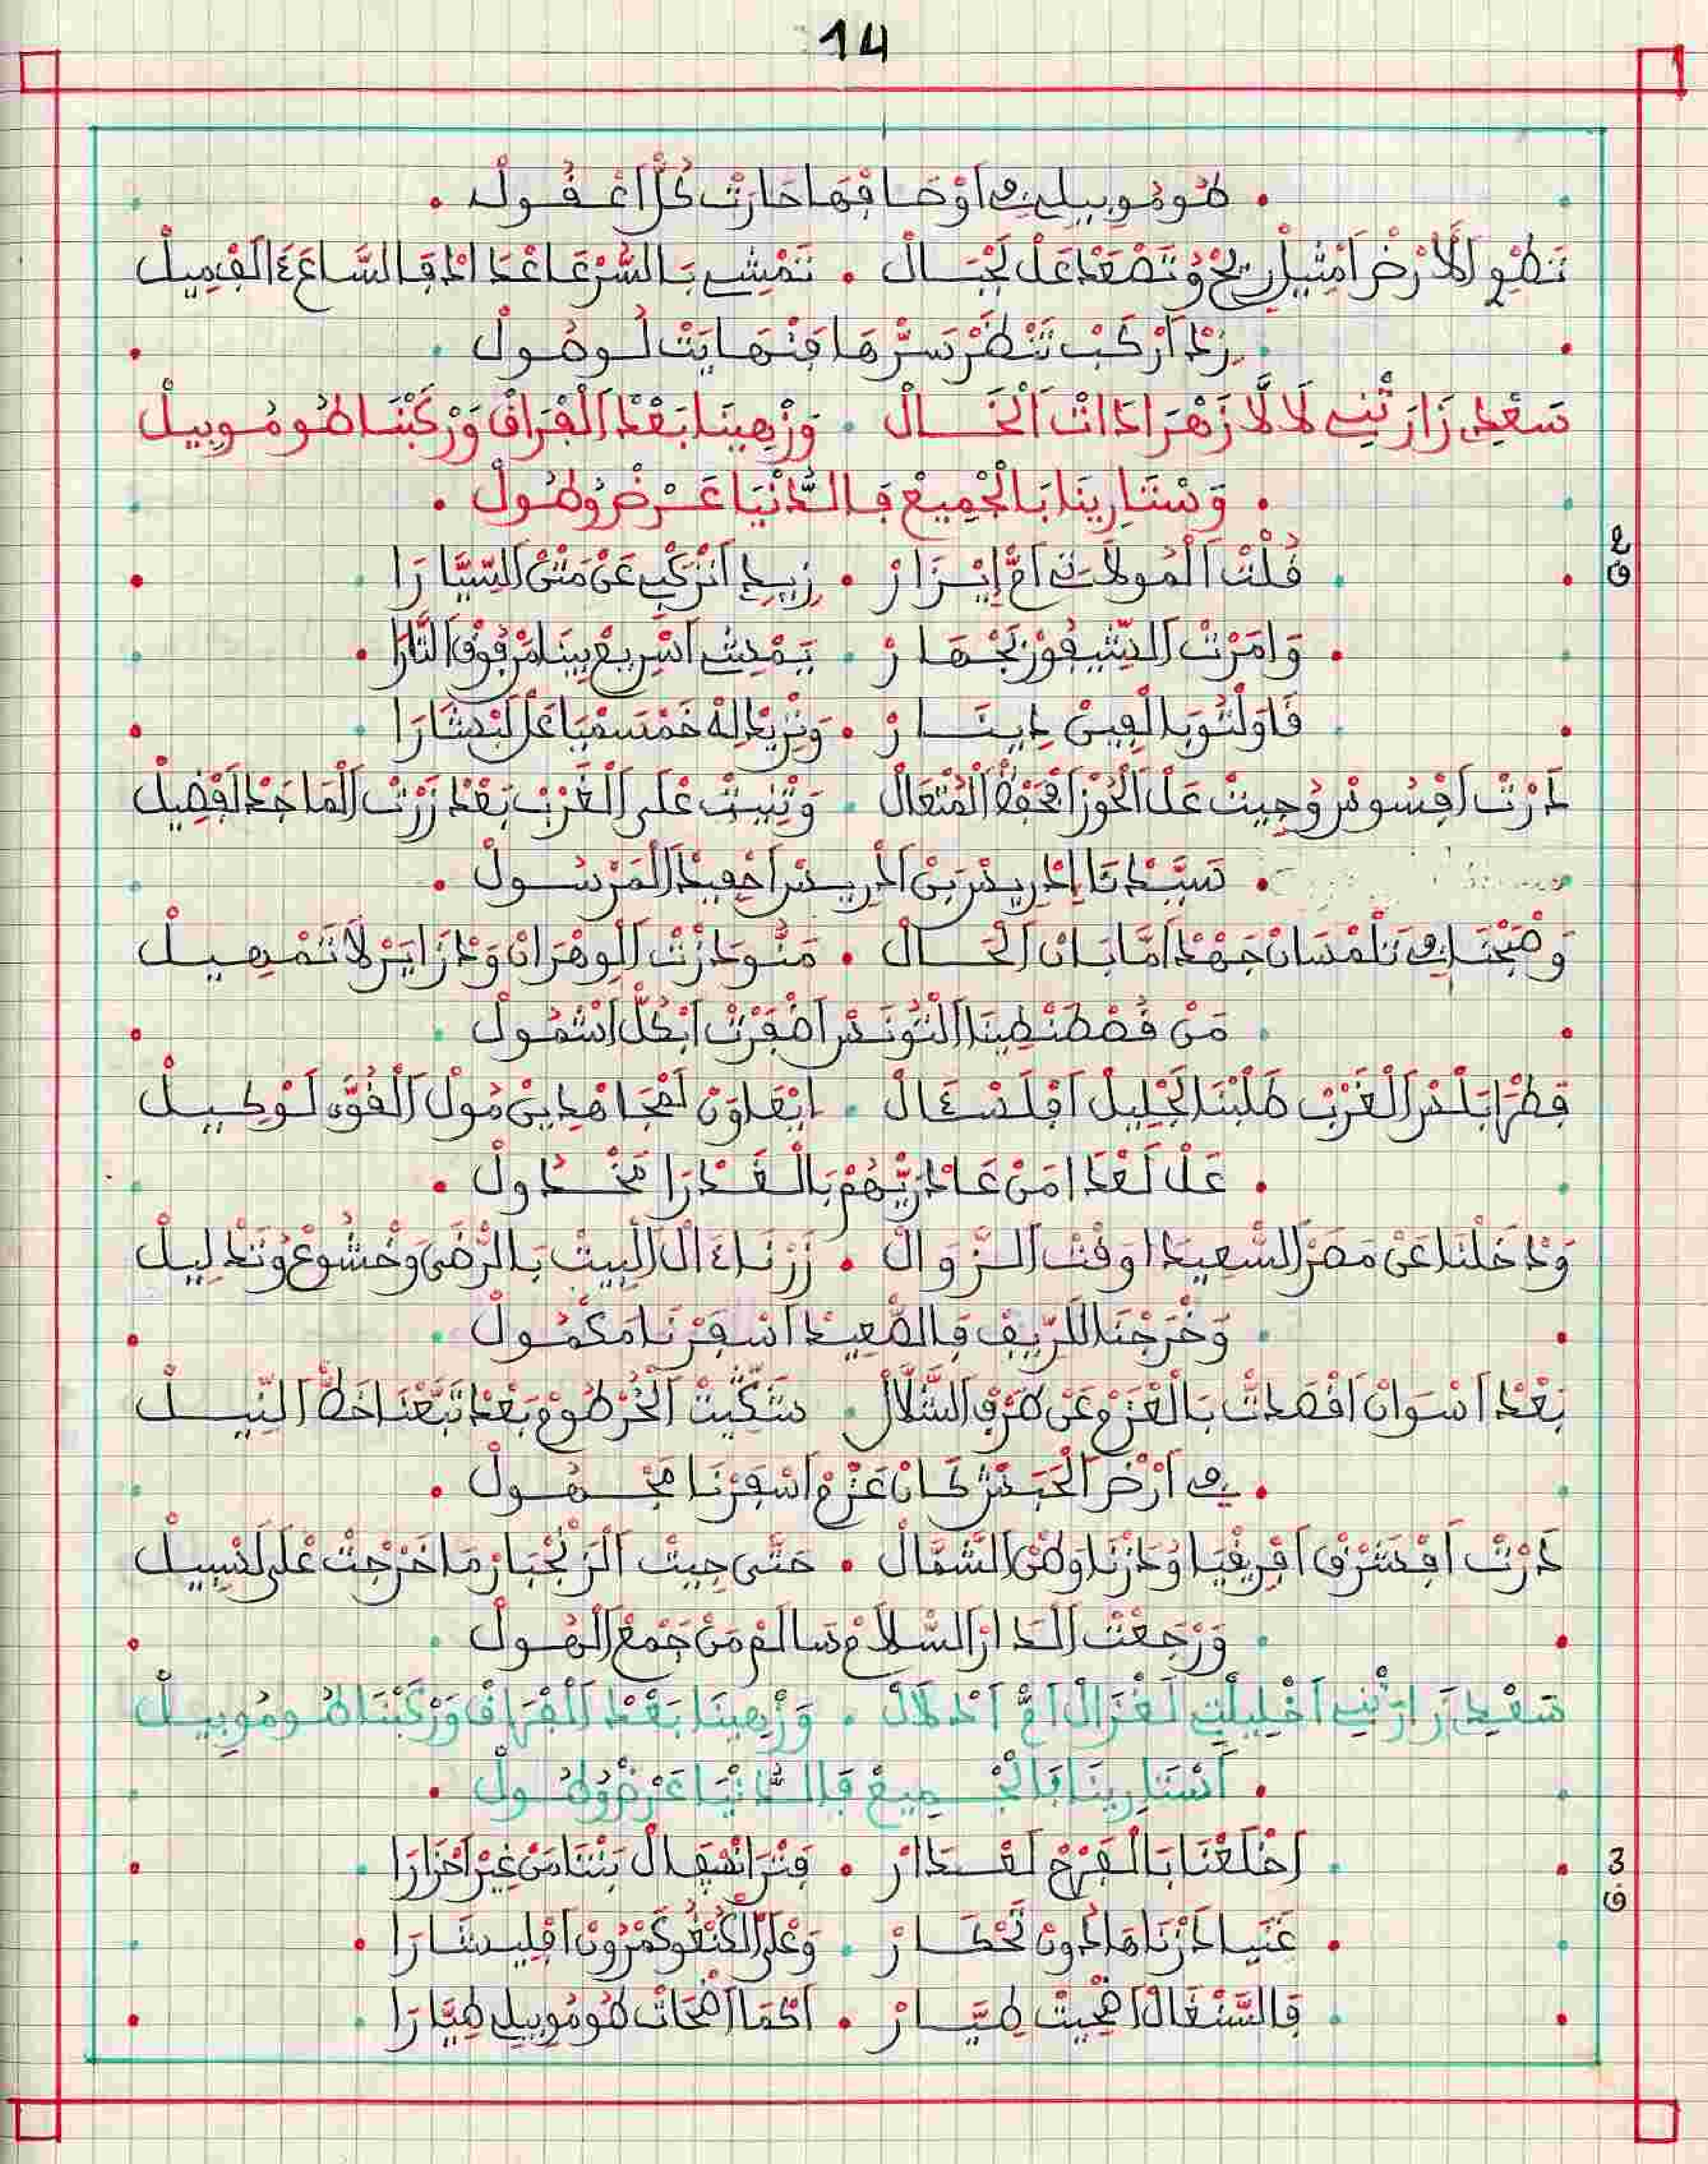 14
طُومُوبِيلِي فِي اَوْصَافْهَا حَارَتْ كُلّْ اعْقُولْ
تَطْوِي اَلَارْضْ اَمْثِيلْ رِيحْ وُتَصْعَدْ عَلْ لَجْبَالْ . تَمْشِي بَالسُّرْعَا عْدَادْ قَالسَّاعَ ءَالَفْ مِيلْ
زِدْ اَرْكَبْ تَنْظَرْ سَرّْهَا فَنْهَايَتْ لُوصُولْ
سَعْدِي زَارَتْنِي لَالَّا زَهْرَا دَاتْ اَلْخَالْ . وَزْهِينَا بَعْدْ اَلْفْرَاقْ وَرْكَبْنَا طُومُوبِيلْ
وَسْتَارِينَا بَالْجْمِيعْ فَالدُّنْيَا عَرْضْ وُطُولْ
قُلْتْ اَلْمُولَاتِي اَمّْ إيْزَارْ . زِيدِي اَنْرَكْبِي عَنْ مَتْنْ اَلسِّيَّارَا
ع ق
وَامَرْتْ اَلشِّيفُورْ بَجْهَارْ . يَمْشِي اَسْرِيعْ بِينَا مَرْفُوقْ اَلتَّارَا
قَاوَلْتُو بَالْفِينْ دِينَارْ . وَنْزِيدْ لِهْ خَمْسَمْيَا عَلْ لَبْشَارَا
دَرْتْ اَفْسُوسْ وُجِيتْ عَلْ اَلْحُوزْ اَفْحَفْظْ اَلْمُتْعَالْ . وَتْنِيتْ عْلَى اَلْغَرْبْ بَعْدْ زَرْتْ اَلْمَاجَدْ لَفْضِيلْ
سَيَّدْنَا إدْرِيسْ بَنْ اَدْرِيسْ اَحْفِيدْ اَلْمَرْسُولْ
وَصْبَحْنَا فِي تَلْمْسَانْ جَهْدْ اَمَّا بَانْ اَلْحَالْ . مَنُّو دَازْتْ اَلْوهْرَانْ وَدْزَايَرْ لَا تَمْهِيلْ
مَنْ قُصْطَنْطِينَا اَلْتُونَسْ اَضْفَرْتْ اَبْكُلّْ اَشْمُولْ
فِطْرَابَلْسْ اَلْغَرْبْ طَلْبْنَا لَجْلِيلْ اَفْلَسْءَالْ . اِيْعَاوَنْ لَمْجَاهْدِينْ مُولْ اَلْقُوَّه لَوْكِيلْ
عَلْ لَعْدَا مَنْ عَادْ رَيّْهُمْ بَالْغَدْرَا مَخْدُولْ
وَدْخَلْنَا عَنْ مَصَرْ اَلسّْعِيدَا وَقْتْ اَلزّْوَالْ . زَرْنَا ءَالْ اَلْبِيتْ بَالرّْضَى وَخْشُوعْ وُتَدْلِيلْ
وَخْرَجْنَا لَلرِّيفْ فَالصّْعِيدْ اَسْفَرْنَا مَكْمُولْ
بَعْدْ اَسْوَانْ اَقْصَدْتْ بَالْعَزْمْ عَنْ طَرْفْ اَلشَّلَّالْ . سَتَكِّيتْ اَلْخُرْطُومْ بَعْدْ تَبَّعْنَا خَطّْ اَلنِّيلْ
فِي اَرْضْ اَلْحَبَشْ كَانْ عَزْمْ اَسْفَرْنَا مَجْهُولْ
دَرْتْ اَفْشَرْقْ اَفْرِيقْيَا وُدَزْنَا وطَنْ اَلشَّمَالْ . حَتَّى جِيتْ اَلزَنْجْبَارْ مَا خَرْجِتْ عْلَى لَسْبِيلْ
وَرْجَعْتْ اَلدَارْ اَلسّْلَامْ سَالَمْ مَنْ جَمْعْ اَلْهُولْ
سَعْدِي زَارَتْنِي اَخْلِيلْتِي لَغْزَالْ اَمّْ اَدْلَالْ . وَزْهِينَا بَعْدْ اَلْفْرَاقْ وَرْكَبْنَا طُومُوبِيلْ
اَسْتَارِينَا فَالْجْمِيعْ فَالدُّنْيَا عَرْضْ وُطُولْ
اَخْلَعْنَا بَالْفَرْحْ لَعْدَارْ . فَنْزَا اَنْسْفَالْ بَتْنَا مَنْ غِيرْ اَحْزَارَا
3 ق
غَنْيَا دَزْنَاهَا دُونْ تَحْكَارْ . وَعْلَى اَلْكُنْغُو كَمْرُونْ اَفْلِيشَارَا
فَالسَّنْغَالْ اَضْحِيتْ طِيَّارْ . اَكْمَا اَضْحَاتْ طُومُوبِيلِي طِيَّارَا